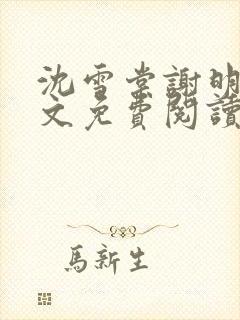 沈雪棠謝明
文免費閱讀
馬新生